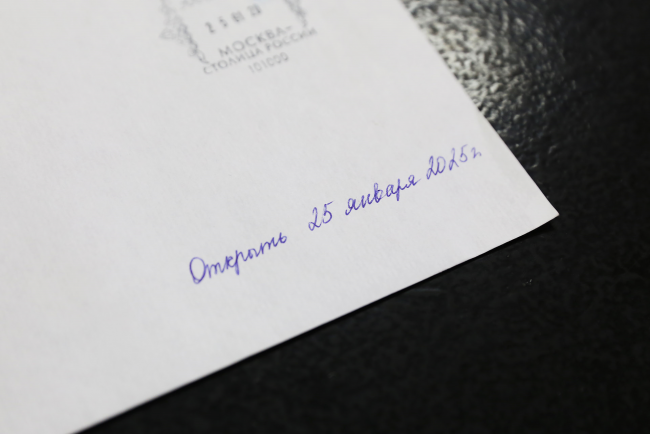 25 01 20
МОСКВА-
СТОЛИЦА РОССИИ
101000
Открыть 25 января 2025г.